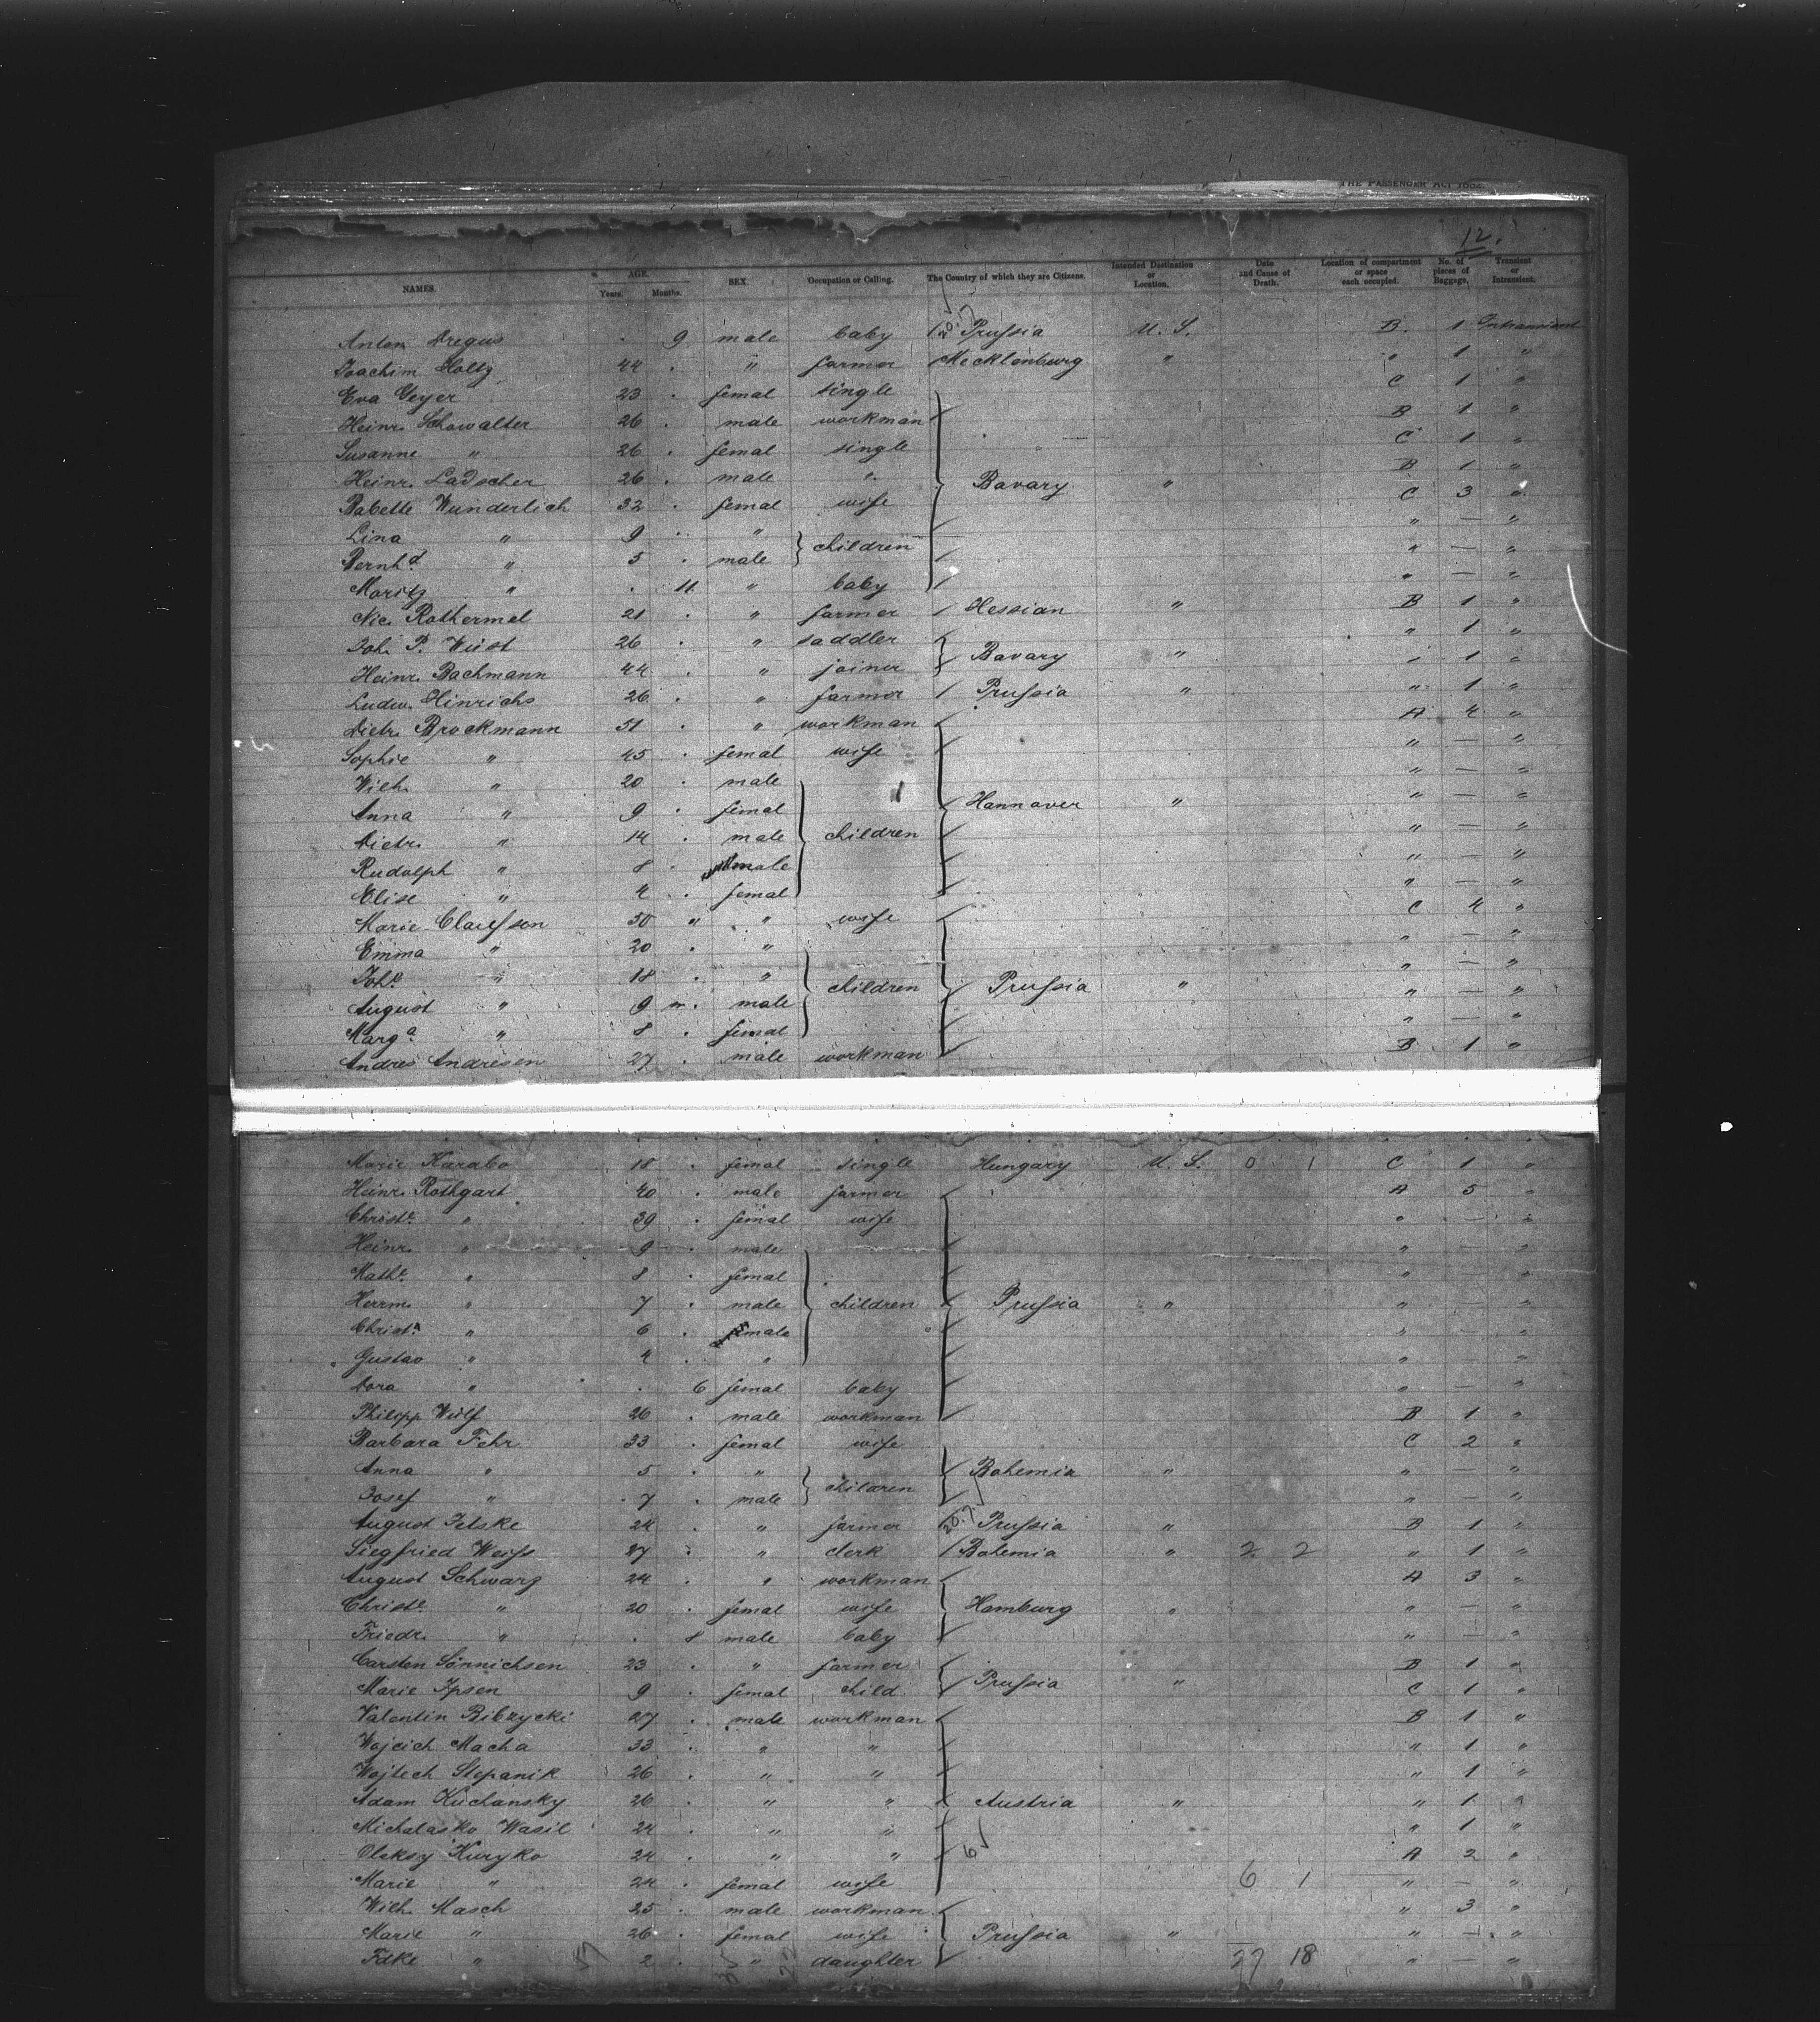 THE PASSENGER ACT 1882.
12.
NAMES. AGE. Years. Months. SEX. Occupation or Calling. The Country of which they are Citizens. Intended Destination or Location. Date and Cause of Death. Location of compartment or space each occupied. No. of pieces of Baggage. Transient or Intransient.
Anton Dregus . 9 male baby / 20.7 Prussia U. S. B. 1 Intransient
Joachim Holtz 44 . " farmer / Mecklenburg " " 1 "
Eva Geyer 23 . femal single C 1 "
Heinr. Schowalter 26 . male workman B 1 "
Susanne " 26 . femal single C 1 "
Heinr. Ladscher 26 . male " B 1 "
Babette Wunderlich 32 . femal wife Bavary " C 3 "
Lina " 9 . " " — "
Bernhd. " 5 . male children " — "
Moritz " . 11 " baby " — "
Nic. Rothermel 21 . " farmer / Hessian " B 1 "
Joh. P. Wüst 26 . " saddler " 1 "
Heinr. Bachmann 44 . " joiner Bavary " " 1 "
Ludw. Hinrichs 26 . " farmer / Prussia " " 1 "
Dietr. Brockmann 51 . " workman A 4 "
Sophie " 45 . femal wife " — "
Wilh. " 20 . male " — "
Anna " 9 . femal Hannover " " — "
Dietr. " 14 . male children " — "
Rudolph " 8 . male " — "
Elise " 4 . femal " — "
Marie Claussen 50 " " wife C 4 "
Emma " 20 . " " — "
Johe " 18 . " " — "
August " 9 . male children Prussia " " — "
Marga. " 8 . femal " — "
Andres Andresen 27 . male workman B 1 "
Marie Karabo 18 . femal single Hungary U. S. 0 1 C 1 "
Heinr. Rothgart 40 . male farmer A 5 "
Christe. " 39 . femal wife " — "
Heinr. " 9 . male " — "
Kathe. " 8 . femal " — "
Herrm. " 7 . male children Prussia " " — "
Christn " 6 . male " — "
Gustav " 4 . " " — "
Dora " . 6 femal baby " — "
Philipp Wolf 26 . male workman B 1 "
Barbara Fehr 33 . femal wife C 2 "
Anna " 5 . " Bohemia " " — "
Josef " 7 . male children " — "
August Jetske 24 . " farmer 20.7 Prussia " B 1 "
Siegfried Weiss 27 . " clerk / Bohemia " 2 2 " 1 "
August Schwarz 24 . " workman A 3 "
Christe. " 20 . femal wife Hamburg " " — "
Friedr. " . 8 male baby " — "
Carsten Sönnichsen 23 . " farmer B 1 "
Marie Ipsen 9 . femal child Prussia " C 1 "
Valentin Bibrycki 27 . male workman B 1 "
Wojcich Macha 33 . " " " 1 "
Wojtech Stepanik 26 . " " " 1 "
Adam Kuchansky 26 . " " Austria " " 1 "
Michalasko Wasil 24 . " " " 1 "
Oleksy Kuryko 24 . " " 6 A 2 "
Marie " 24 . femal wife 6 1 " — "
Wilh. Masch 25 . male workman " 3 "
Marie " 26 . femal wife Prussia " " — "
Fdke " 57 2 . " daughter 27 18 " — "